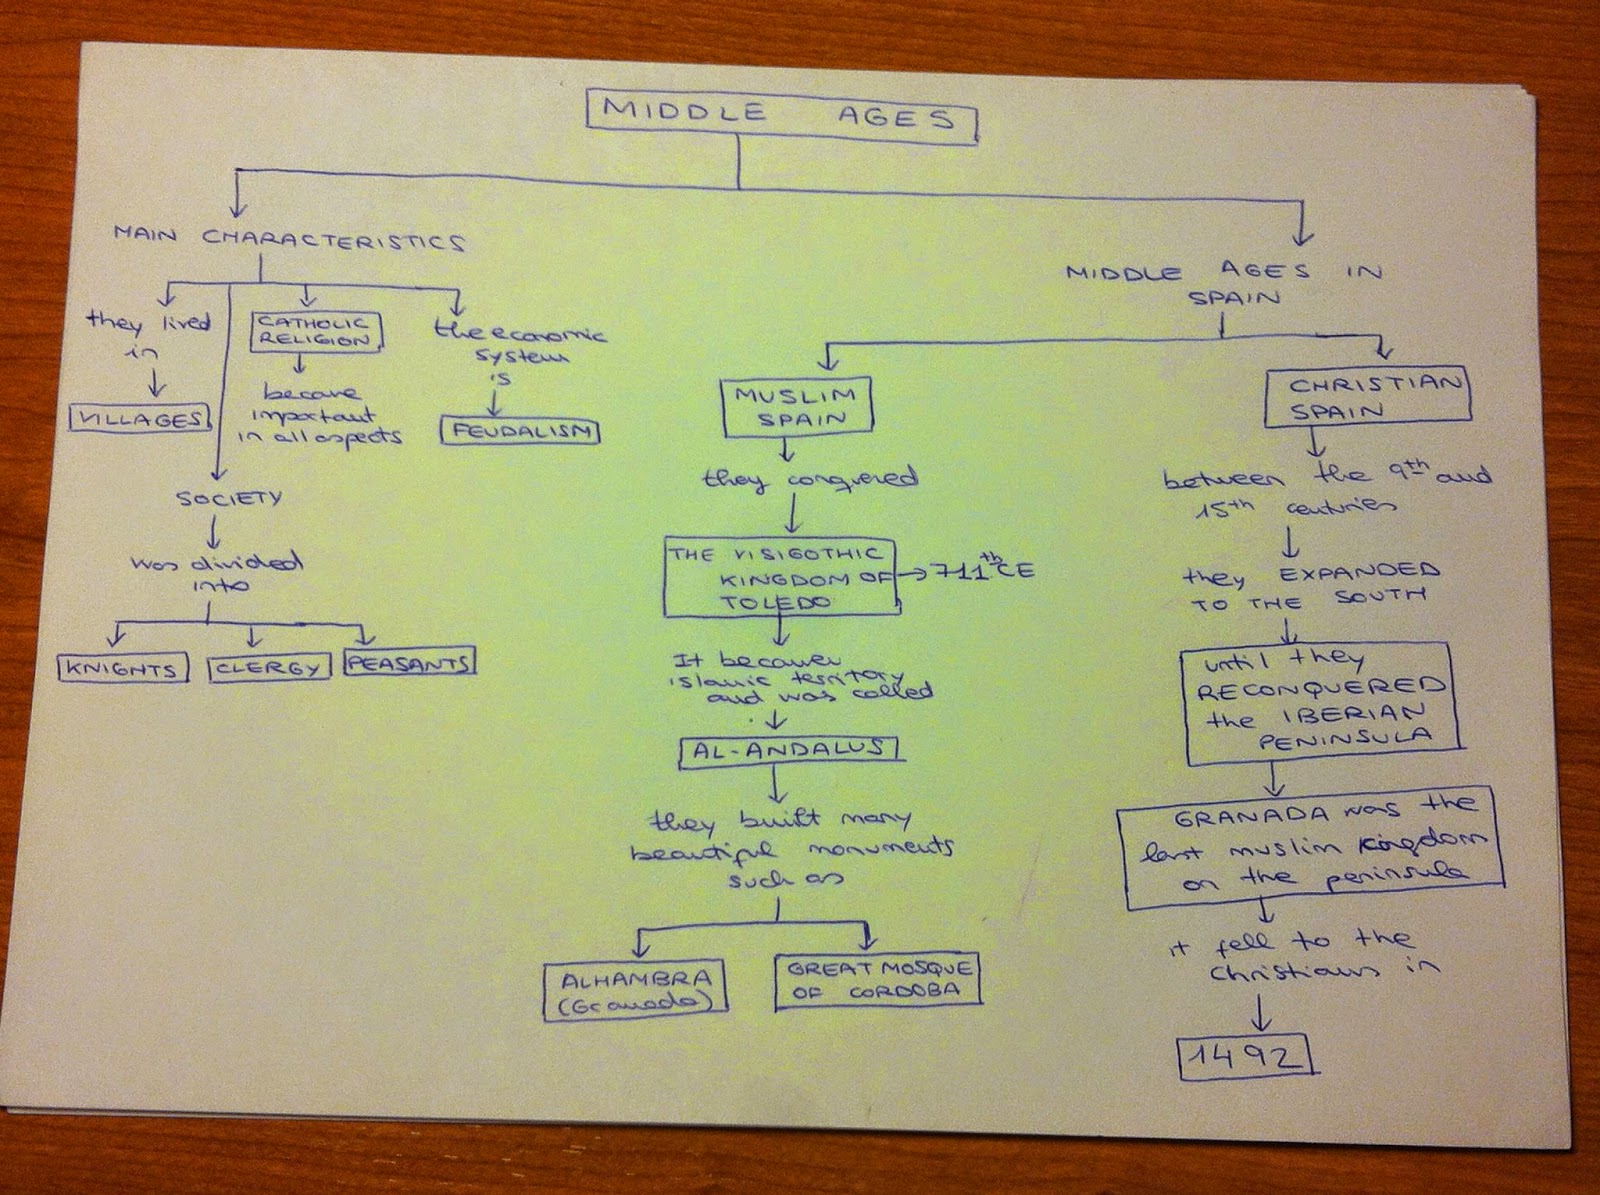 MIDDLE AGES
MAIN CHARACTERISTICS
they lived
in
VILLAGES
CATHOLIC
RELIGION
became
important
in all aspects
the economic
system
is
FEUDALISM
SOCIETY
was divided
into
KNIGHTS
CLERGY
PEASANTS
MIDDLE AGES IN
SPAIN
MUSLIM
SPAIN
they conquered
THE VISIGOTHIC
KINGDOM OF
TOLEDO
711th CE
It became
islamic territory
and was called
AL-ANDALUS
they built many
beautiful monuments
such as
ALHAMBRA
(Granada)
GREAT MOSQUE
OF CORDOBA
CHRISTIAN
SPAIN
between the 9th and
15th centuries
they EXPANDED
TO THE SOUTH
until they
RECONQUERED
the IBERIAN
PENINSULA
GRANADA was the
last muslim kingdom
on the peninsula
it fell to the
Christians in
1492